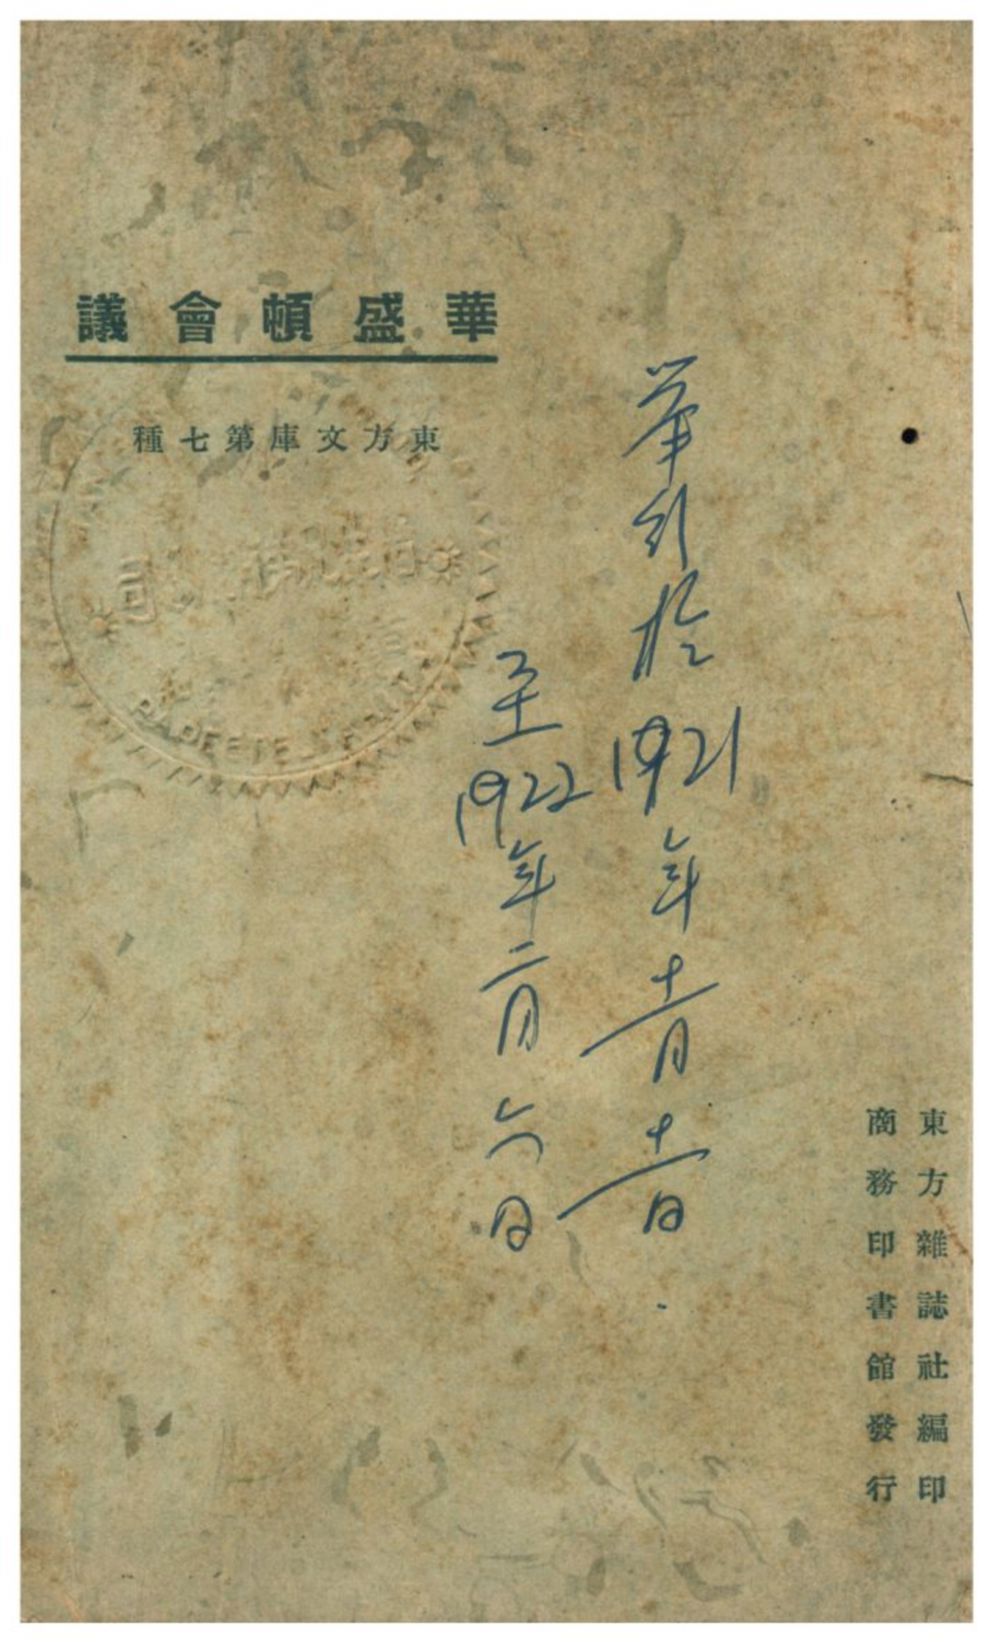 華盛頓會議
東方文庫第七種
舉行於1921年十一月十二日
至1922年二月六日
東方雜誌社編印
商務印書館發行
PAPEETE